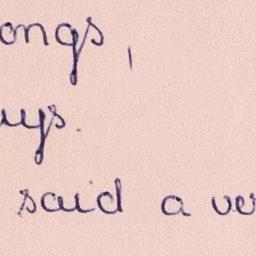 ongs,
ays.
said a ve